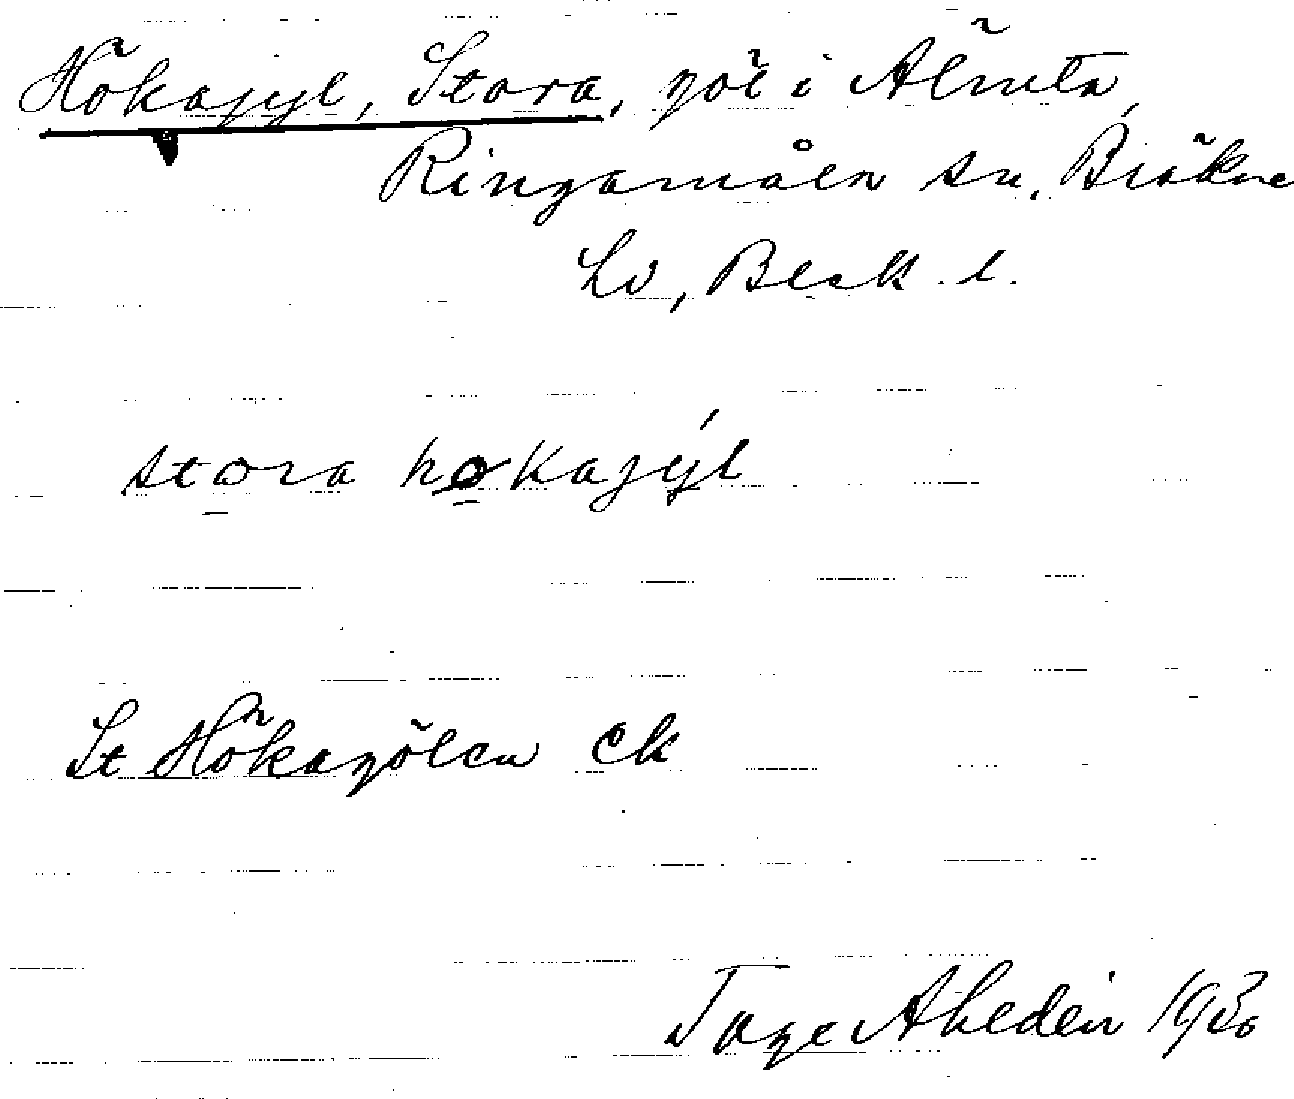 Hökajyl, Stora, göl i Älmta,
Ringamåla sn, Bräkne
hd, Blek. l.
stora høkajýl
St Hökagölen ek
Tage Ahldén 1930